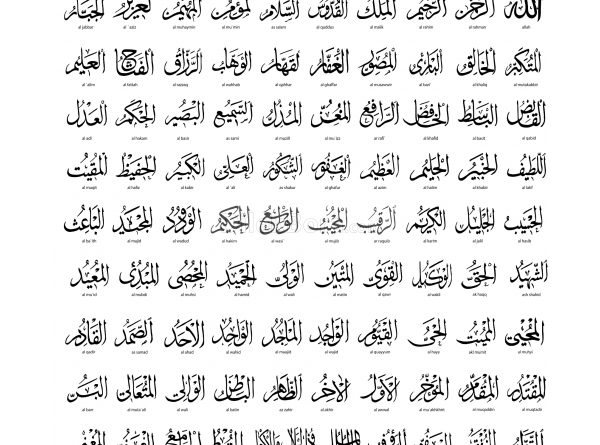 الله الرحمن الرحيم الملك القدوس السلام المؤمن المهيمن العزيز الجبار
al jabbar al `aziz al muhaymin al mu`min as salam al quddus al malik al rahim al rahman allah
المتكبر الخالق البارئ المصور الغفار القهار الوهاب الرزاق الفتاح العليم
al `alim al fattah al razzaq al wahhab al qahhar al ghaffar al musawwir al bari al khaliq al mutakabbir
القابض الباسط الخافض الرافع المعز المذل السميع البصير الحكم العدل
al adl al hakam al basir as sami al muzill al mu`izz ar rafi al khafid al basit al qabid
اللطيف الخبير الحليم العظيم الغفور الشكور العلي الكبير الحفيظ المقيت
al muqit al hafiz al kabir al `ali as shakur al ghafur al azim al halim al khabir al latif
الحسيب الجليل الكريم الرقيب المجيب الواسع الحكيم الودود المجيد الباعث
al ba`ith al majid al wadud al hakim al wasi` al mujib ar raquib al karim al jalil al hasib
الشهيد الحق الوكيل القوي المتين الولي الحميد المحصي المبدئ المعيد
al mu`id al mubdi al muhsi al hamid al wali al matin al qawi al wakil al haqq ash shahid
المحيي المميت الحي القيوم الواجد الماجد الواحد الاحد الصمد القادر
al qadir as samad al ahad al wahid al maajid al wajid al quayyum al hayy al mumit al muhyi
المقتدر المقدم المؤخر الأول الآخر الظاهر الباطن الوالي المتعالي البر
al barr al muta`ali al wali al batin az zahir al akhir al awwal al mu`akhkhir al muqaddim al muqtadir